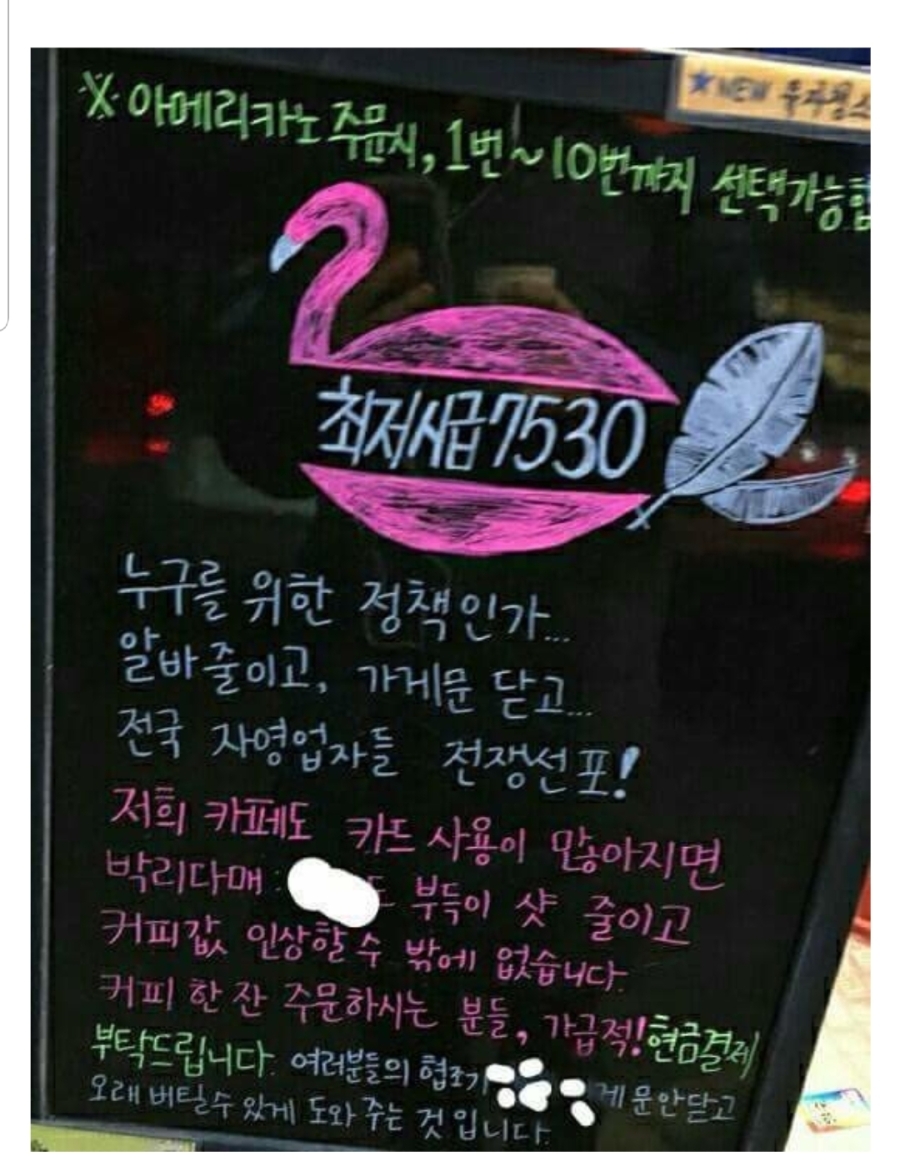 ★NEW
※ 아메리카노 주문시, 1번~10번까지 선택가능함
최저시급 7530
누구를 위한 정책인가...
알바 줄이고, 가게문 닫고...
전국 자영업자들 전쟁선포!
저희 카페도 카드 사용이 많아지면
박리다매: 도 부득이 샷 줄이고
커피값 인상할 수 밖에 없습니다.
커피 한 잔 주문하시는 분들, 가급적! 현금결제
부탁드립니다. 여러분들의 협조가 게 문 안닫고
오래 버틸수 있게 도와 주는 것 입니다.